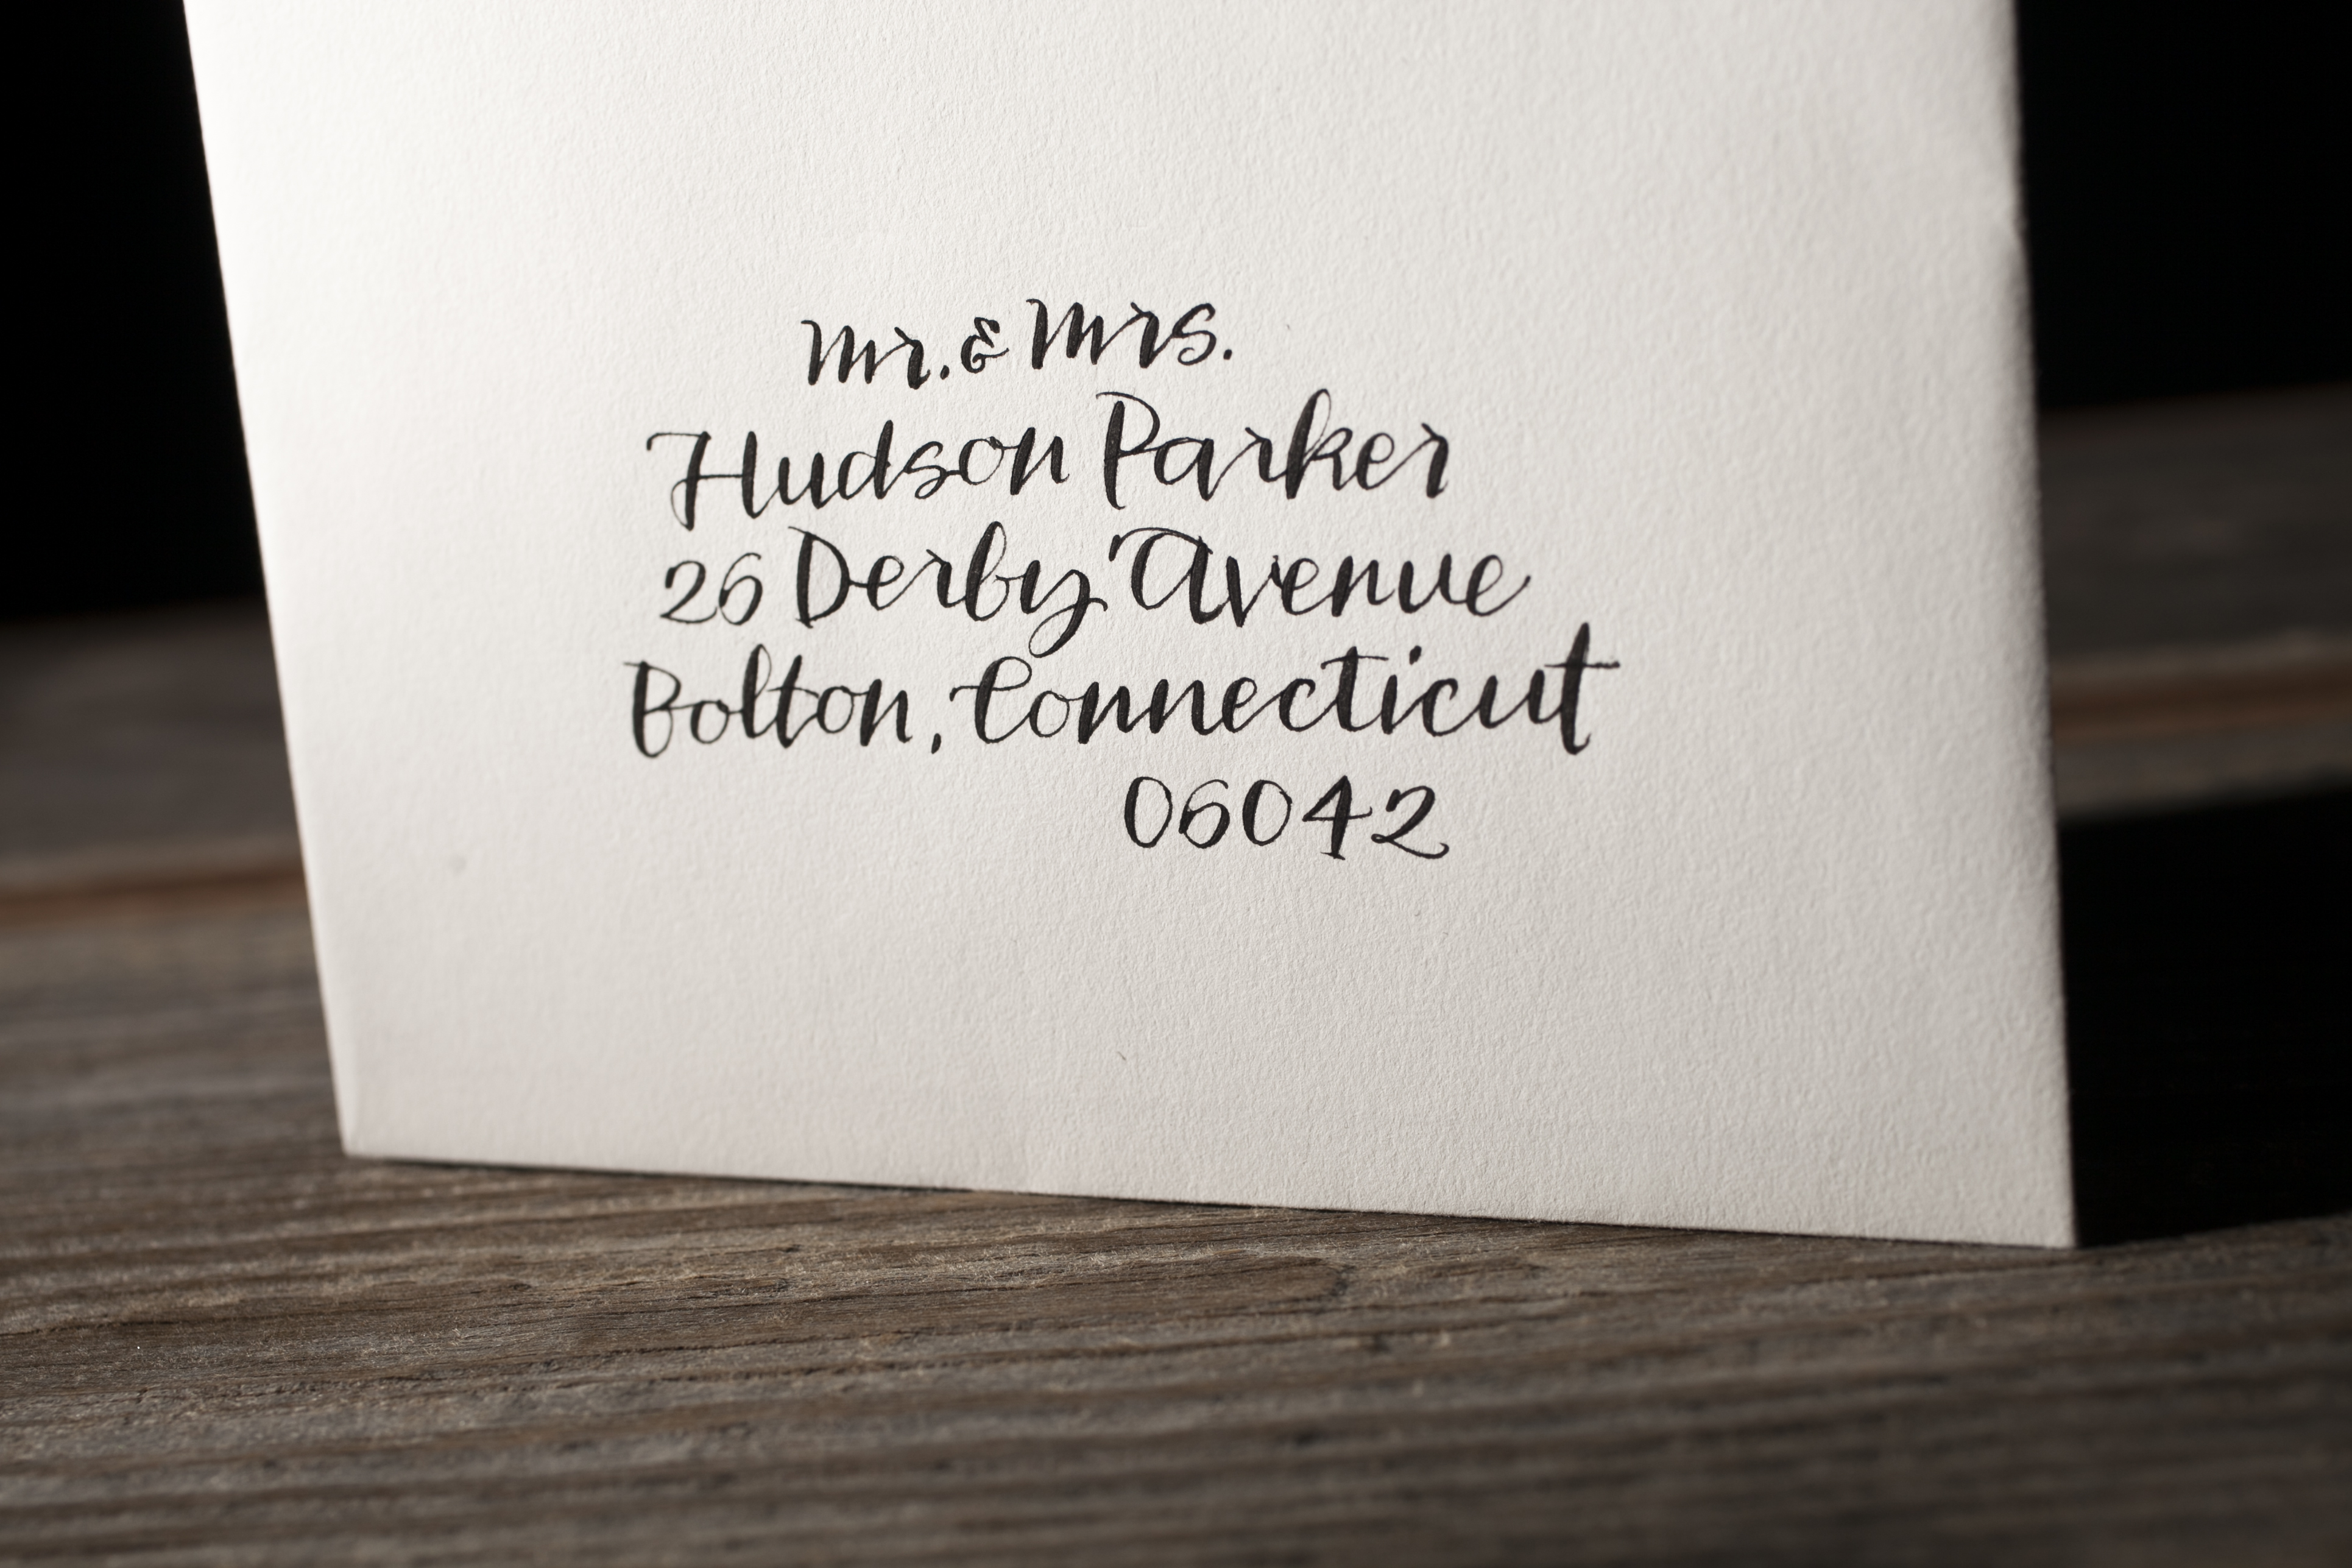 Mr. & Mrs.
Hudson Parker
26 Derby Avenue
Bolton, Connecticut
06042